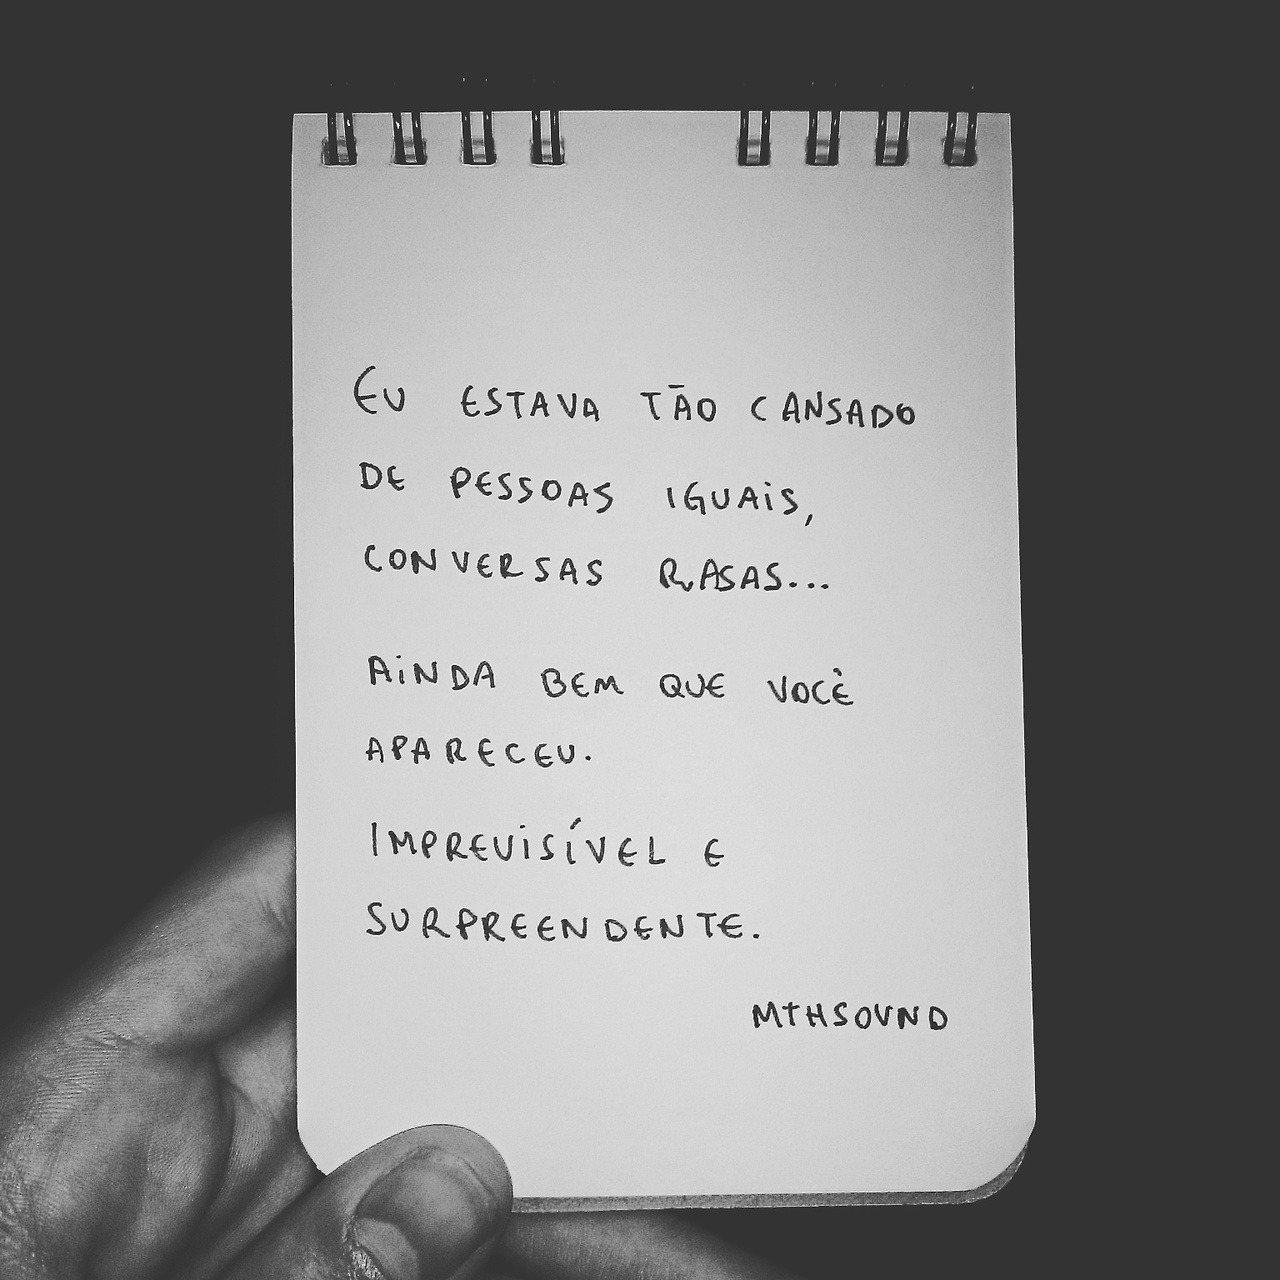 EU ESTAVA TÃO CANSADO
DE PESSOAS IGUAIS,
CONVERSAS RASAS...
AINDA BEM QUE VOCÊ
APARECEU.
IMPREVISÍVEL E
SURPREENDENTE.
MTHSOVND